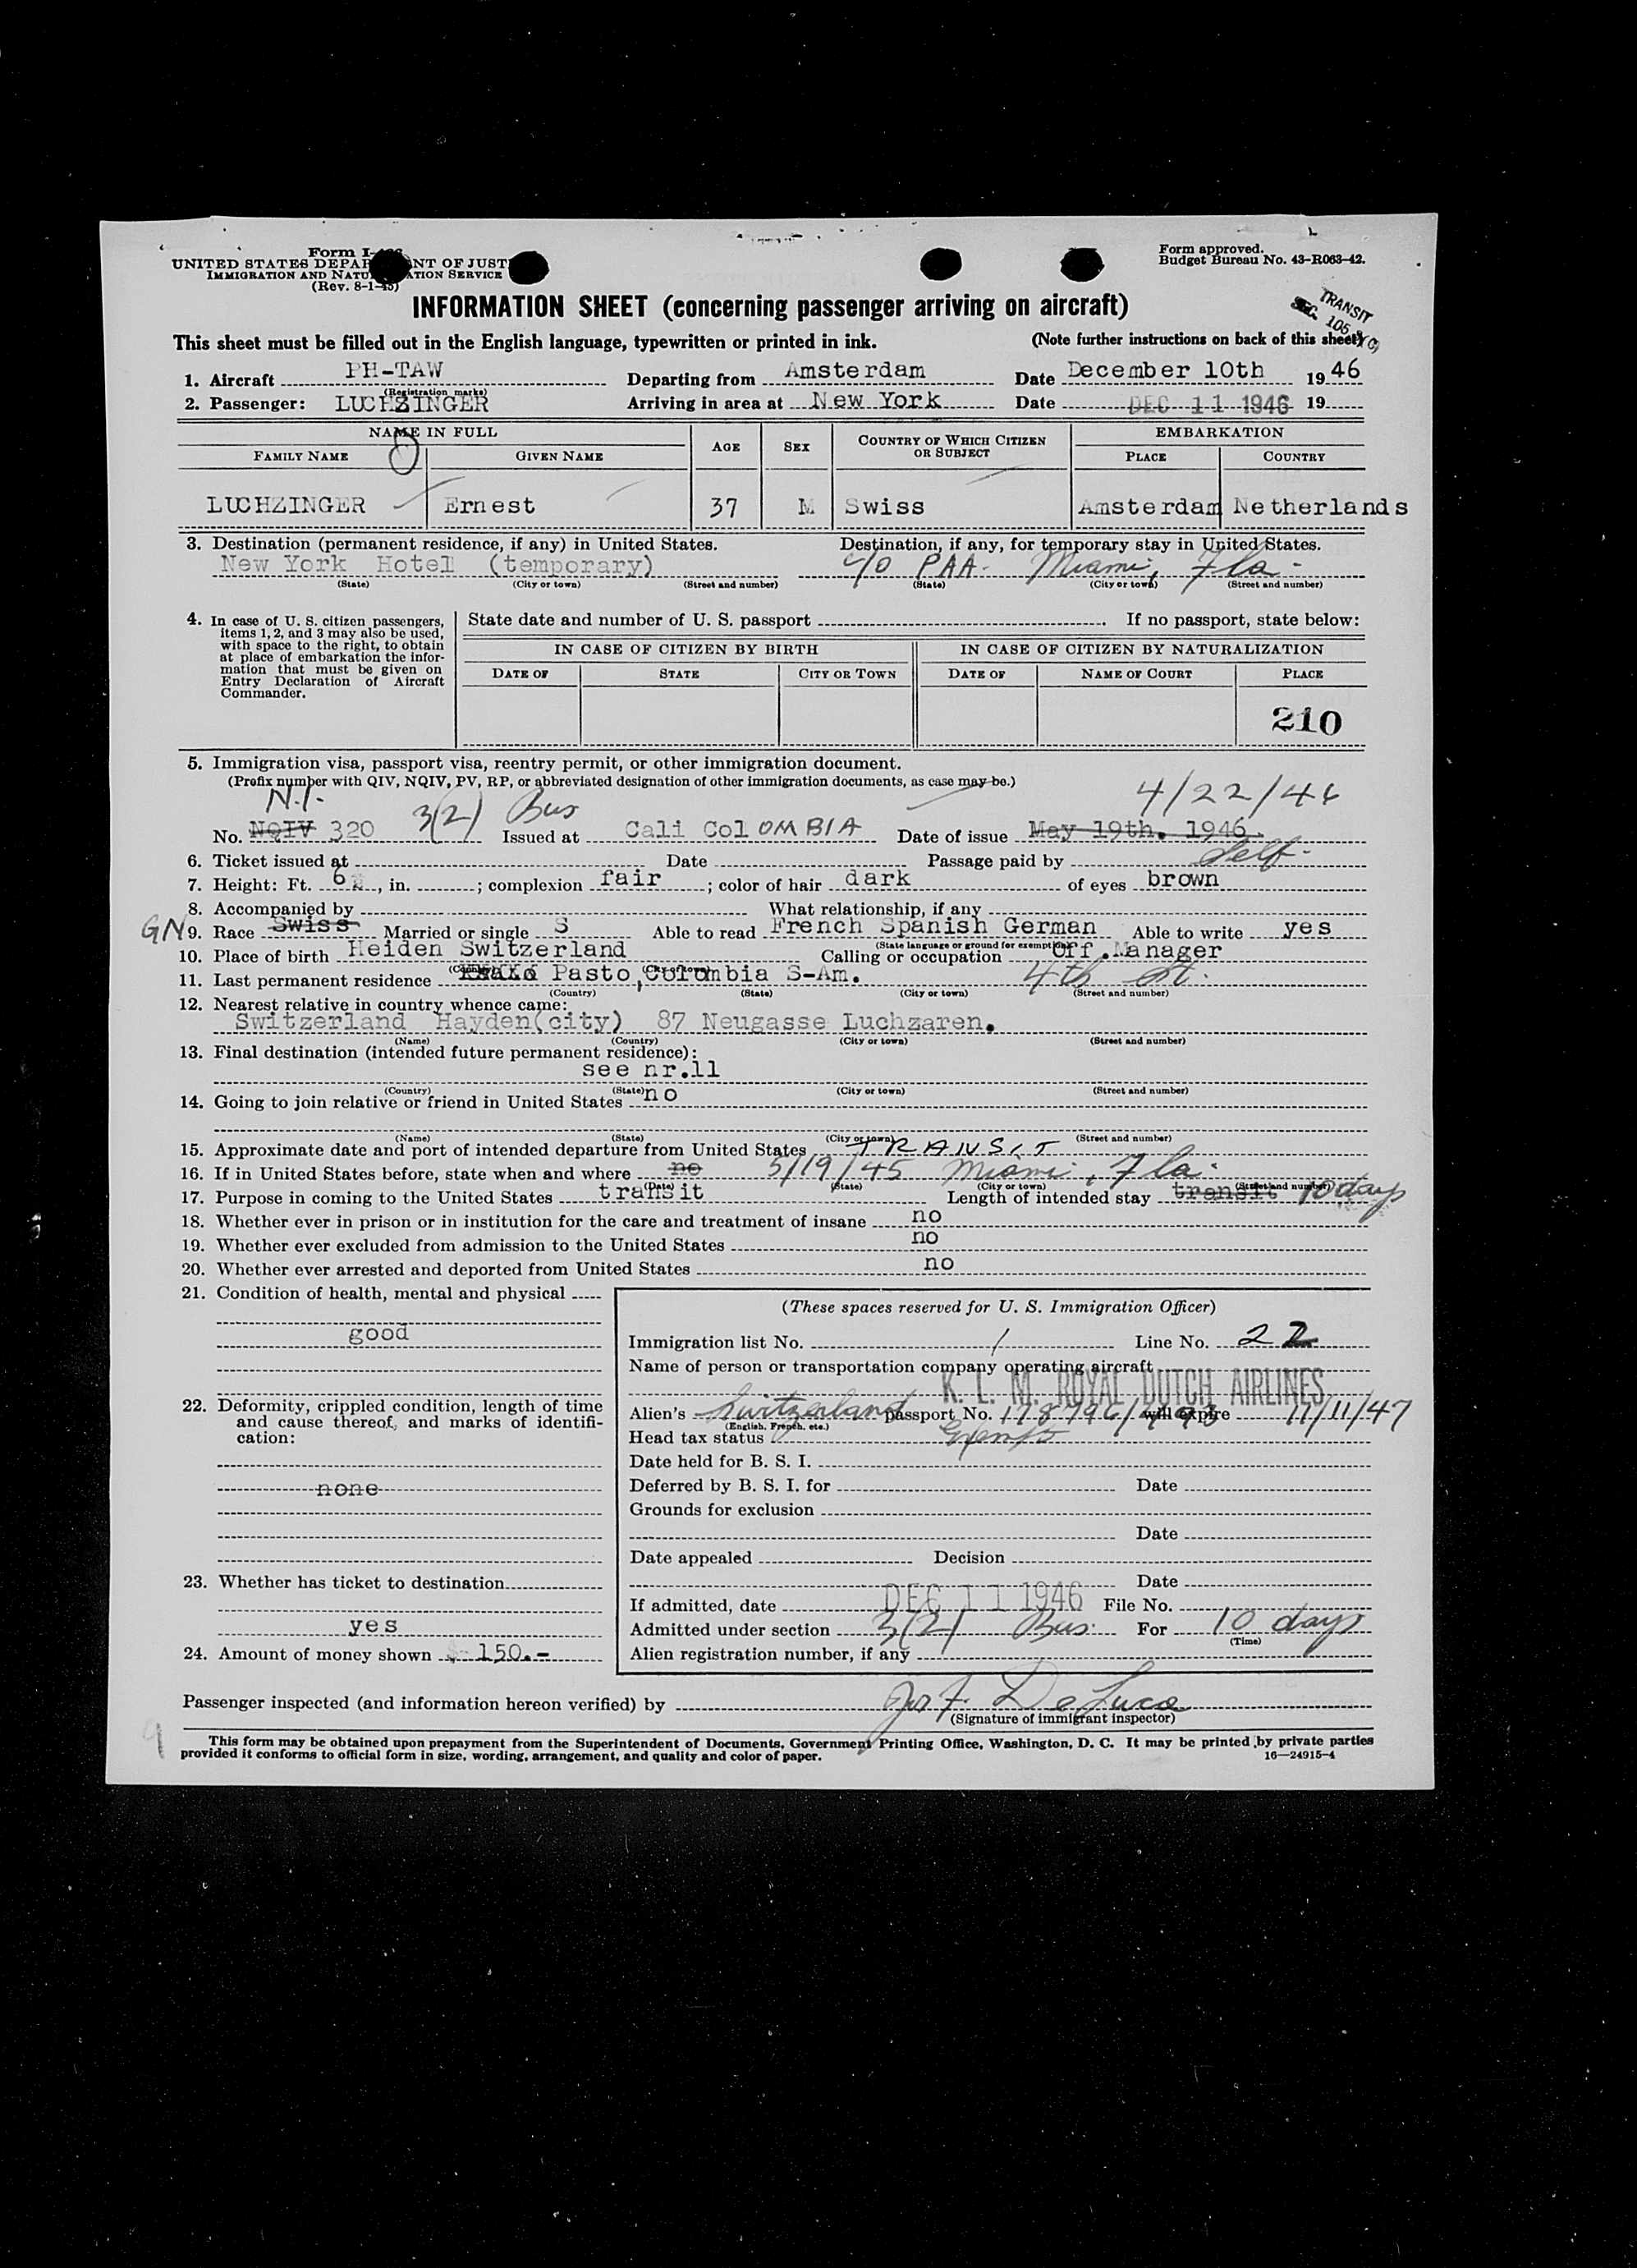 Form I-
UNITED STATES DEPAR NT OF JUST
IMMIGRATION AND NATU ATION SERVICE
(Rev. 8-1-45)
Form approved.
Budget Bureau No. 43-R063-42.
INFORMATION SHEET (concerning passenger arriving on aircraft)
TRANSIT
SEC. 105.3(c)
This sheet must be filled out in the English language, typewritten or printed in ink. (Note further instructions on back of this sheet)
1. Aircraft PH-TAW Departing from Amsterdam Date December 10th 1946
(Registration marks)
2. Passenger: LUCHZINGER Arriving in area at New York Date DEC 11 1946 19
NAME IN FULL AGE SEX COUNTRY OF WHICH CITIZEN OR SUBJECT EMBARKATION
FAMILY NAME GIVEN NAME PLACE COUNTRY
LUCHZINGER Ernest 37 M Swiss Amsterdam Netherlands
3. Destination (permanent residence, if any) in United States. Destination, if any, for temporary stay in United States.
New York Hotel (temporary) c/o PAA- Miami, Fla-
(State) (City or town) (Street and number) (State) (City or town) (Street and number)
4. In case of U. S. citizen passengers, items 1, 2, and 3 may also be used, with space to the right, to obtain at place of embarkation the information that must be given on Entry Declaration of Aircraft Commander.
State date and number of U. S. passport . If no passport, state below:
IN CASE OF CITIZEN BY BIRTH IN CASE OF CITIZEN BY NATURALIZATION
DATE OF STATE CITY OR TOWN DATE OF NAME OF COURT PLACE
210
5. Immigration visa, passport visa, reentry permit, or other immigration document.
(Prefix number with QIV, NQIV, PV, RP, or abbreviated designation of other immigration documents, as case may be.)
N.I. 3(2) Bus 4/22/46
No. NQIV 320 Issued at Cali ColOMBIA Date of issue May 19th. 1946
6. Ticket issued at Date Passage paid by Self-
7. Height: Ft. 6 , in. ; complexion fair ; color of hair dark of eyes brown
8. Accompanied by What relationship, if any
GN 9. Race Swiss Married or single S Able to read French Spanish German Able to write yes
(State language or ground for exemption)
10. Place of birth Heiden Switzerland Calling or occupation Off.Manager
(Country) (City or town)
11. Last permanent residence Pasto,Colombia S-Am. 4th St.
(Country) (State) (City or town) (Street and number)
12. Nearest relative in country whence came:
Switzerland Hayden(city) 87 Neugasse Luchzaren.
(Name) (Country) (City or town) (Street and number)
13. Final destination (intended future permanent residence):
see nr.11
(Country) (State) (City or town) (Street and number)
14. Going to join relative or friend in United States no
(Name) (State) (City or town) (Street and number)
15. Approximate date and port of intended departure from United States TRANSIT
16. If in United States before, state when and where no 5/19/45 Miami, Fla.
(Date) (State) (City or town) (Street and number)
17. Purpose in coming to the United States transit Length of intended stay transit 10 days
18. Whether ever in prison or in institution for the care and treatment of insane no
19. Whether ever excluded from admission to the United States no
20. Whether ever arrested and deported from United States no
21. Condition of health, mental and physical
good
22. Deformity, crippled condition, length of time and cause thereof, and marks of identification:
none
23. Whether has ticket to destination
yes
24. Amount of money shown $ 150.-
(These spaces reserved for U. S. Immigration Officer)
Immigration list No. 1 Line No. 22
Name of person or transportation company operating aircraft
K. L. M. ROYAL DUTCH AIRLINES
Alien's Switzerland passport No. will expire 11/11/47
(English, French, etc.)
Head tax status Exempt
Date held for B. S. I.
Deferred by B. S. I. for Date
Grounds for exclusion
Date
Date appealed Decision
Date
If admitted, date DEC 11 1946 File No.
Admitted under section 3(2) Bus. For 10 days
(Time)
Alien registration number, if any
Passenger inspected (and information hereon verified) by Jos F. DeLuca
(Signature of immigrant inspector)
9
This form may be obtained upon prepayment from the Superintendent of Documents, Government Printing Office, Washington, D. C. It may be printed by private parties
provided it conforms to official form in size, wording, arrangement, and quality and color of paper. 16—24915-4